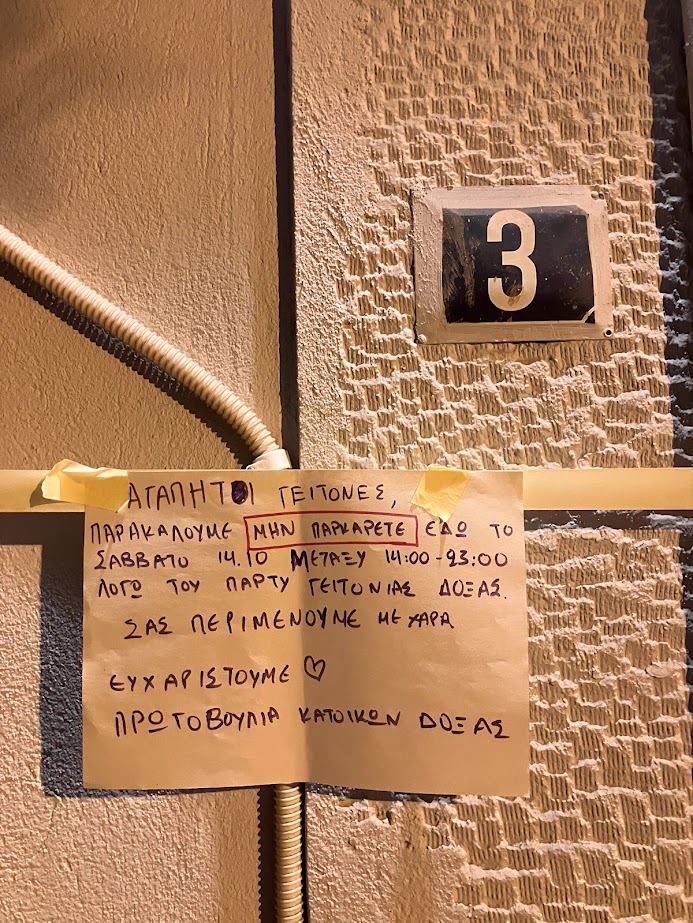 3
ΑΓΑΠΗΤΟΙ ΓΕΙΤΟΝΕΣ,
ΠΑΡΑΚΑΛΟΥΜΕ ΜΗΝ ΠΑΡΚΑΡΕΤΕ ΕΔΩ ΤΟ
ΣΑΒΒΑΤΟ 14.10 ΜΕΤΑΞΥ 14:00-23:00
ΛΟΓΩ ΤΟΥ ΠΑΡΤΥ ΓΕΙΤΟΝΙΑΣ ΔΟΞΑΣ.
ΣΑΣ ΠΕΡΙΜΕΝΟΥΜΕ ΜΕ ΧΑΡΑ
ΕΥΧΑΡΙΣΤΟΥΜΕ ♡
ΠΡΩΤΟΒΟΥΛΙΑ ΚΑΤΟΙΚΩΝ ΔΟΞΑΣ